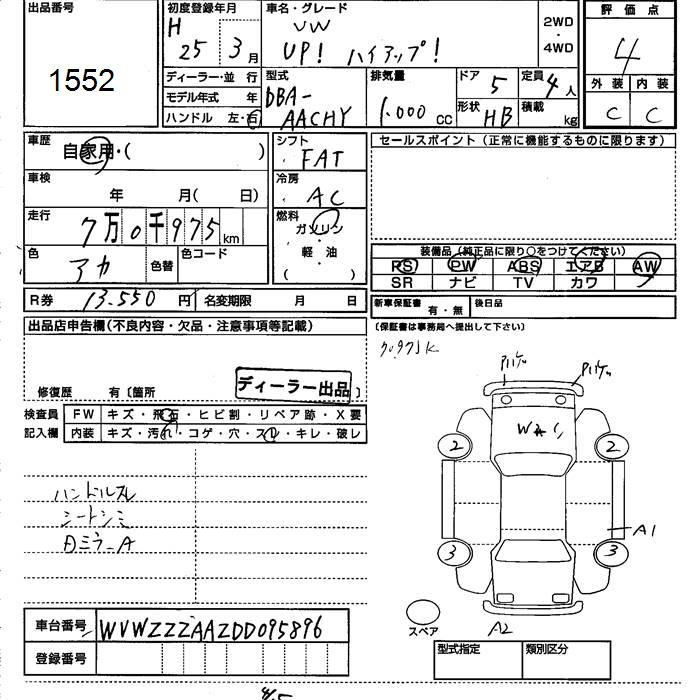 出品番号
1552
初度登録年月
H
25 3月
車名・グレード
VW
UP! ハイアップ!
2WD
・
4WD
評価点
4
外装 内装
C C
ディーラー・並 行
モデル年式 年
ハンドル 左・右
型式
DBA-
AACHY
排気量
1.000 cc
ドア 5
形状 HB
定員 4人
積載 kg
車歴
自家用・( )
車検
年 月( 日)
走行
7万0千975km
色
アカ
色替
色コード
シフト
FAT
冷房
AC
燃料
ガソリン
・
軽・油
( )
セールスポイント(正常に機能するものに限ります)
装備品(純正品に限り○をつけてください)
PS PW ABS エアB AW
SR ナビ TV カワ
R券 13.550円
名変期限 月 日
新車保証書 有・無
後日品
(保証書は事務局へ提出して下さい)
出品店申告欄(不良内容・欠品・注意事項等記載)
修復歴 有〔箇所 〕
ディーラー出品
検査員
記入欄
FW キズ・飛石・ヒビ割・リペア跡・X要
内装 キズ・汚れ・コゲ・穴・スレ・キレ・破レ
ハンドルスレ
シートシミ
DミラーA
70975K
2 2
3 3
A1
A2
スペア
車台番号 WVWZZZAAZDD095896
登録番号
型式指定 類別区分